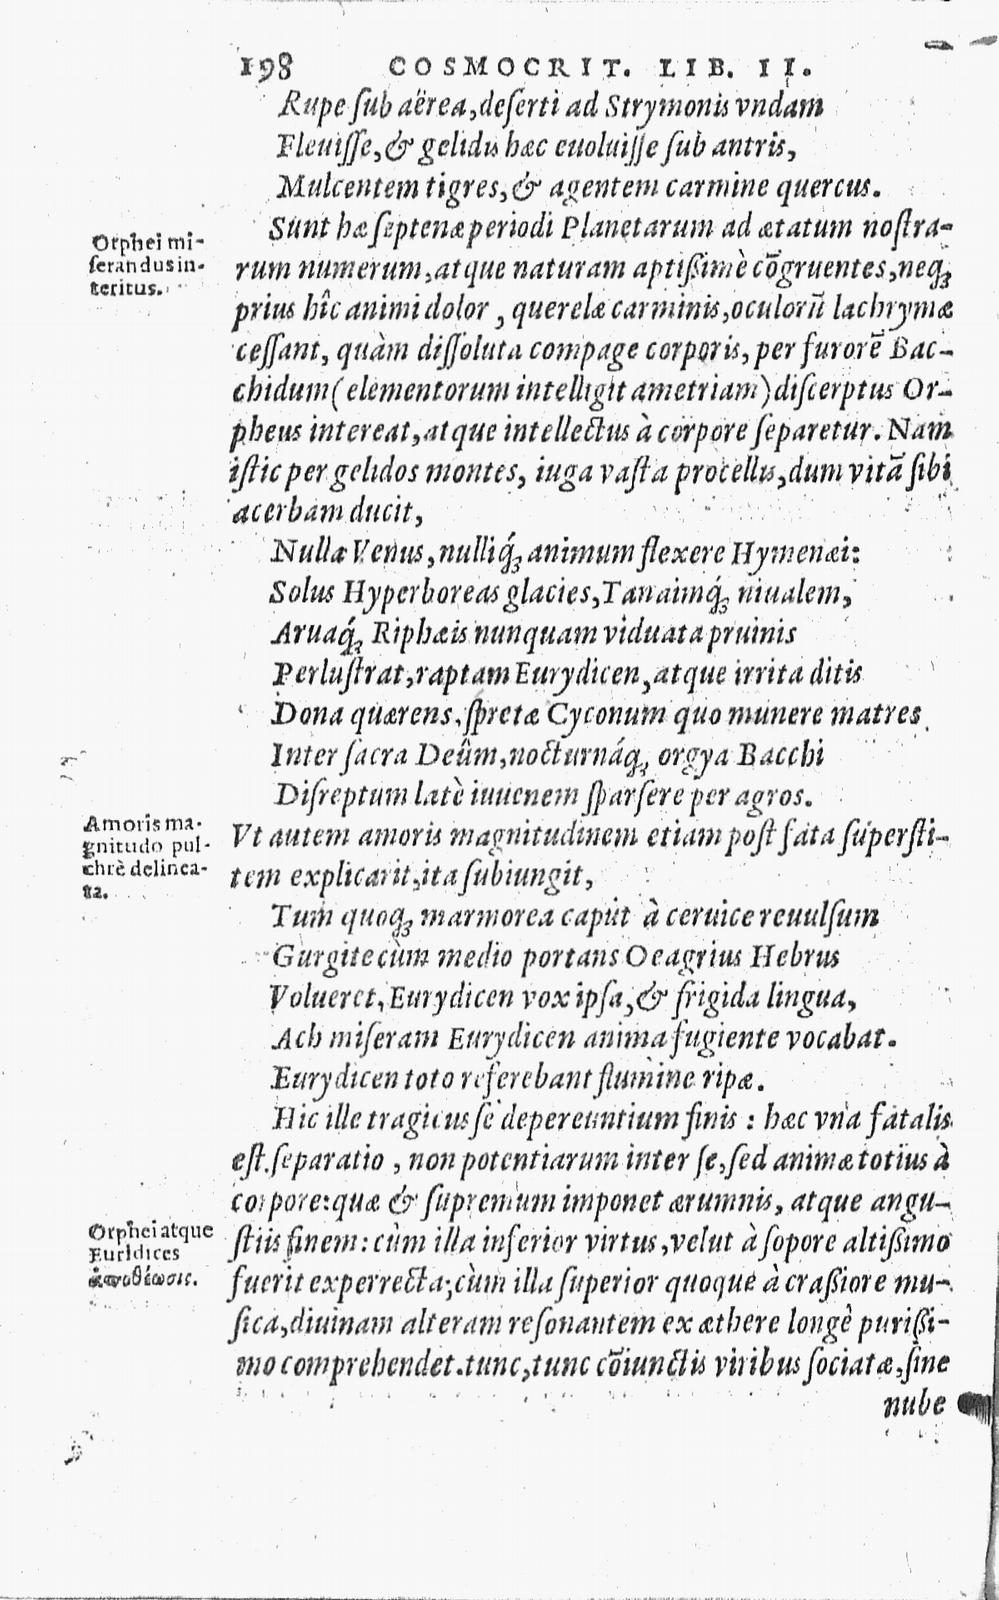 198 COSMOCRIT. LIB. II.
Rupe ſub aërea, deſerti ad Strymonis vndam
Fleuiſſe, & gelidis hæc euoluiſſe ſub antris,
Mulcentem tigres, & agentem carmine quercus.
Orphei mi-
ſerandus in-
teritus.
Sunt hæ ſeptenæ periodi Planetarum ad ætatum noſtra-
rum numerum, atque naturam aptißimè cõgruentes, neqꝫ
prius hîc animi dolor, querelæ carminis, oculorũ lachrymæ
ceſſant, quàm diſſoluta compage corporis, per furorẽ Bac-
chidum (elementorum intelligit ametriam) diſcerptus Or-
pheus intereat, atque intellectus à corpore ſeparetur. Nam
iſtic per gelidos montes, iuga vaſta procellis, dum vitã ſibi
acerbam ducit,
Nulla Venus, nulliq́ꝫ animum flexere Hymenæi:
Solus Hyperboreas glacies, Tanaimq́ꝫ niualem,
Aruaq́ꝫ Riphæis nunquam viduata pruinis
Perluſtrat, raptam Eurydicen, atque irrita ditis
Dona quærens, ſpretæ Cyconum quo munere matres
Inter ſacra Deûm, nocturnáqꝫ orgya Bacchi
Diſreptum latè iuuenem ſparſere per agros.
Amoris ma-
gnitudo pul-
chrè delinea-
ta.
Vt autem amoris magnitudinem etiam poſt fata ſuperſti-
tem explicarit, ita ſubiungit,
Tum quoqꝫ marmorea caput à ceruice reuulſum
Gurgite cùm medio portans Oeagrius Hebrus
Volueret, Eurydicen vox ipſa, & frigida lingua,
Ach miſeram Eurydicen anima fugiente vocabat.
Eurydicen toto referebant flumine ripæ.
Hic ille tragicus ſe depereuntium finis: hæc vna fatalis
eſt ſeparatio, non potentiarum inter ſe, ſed animæ totius à
corpore: quæ & ſupremum imponet ærumnis, atque angu-
Orphei atque
Euridices
ἀποθέωσις.
ſtiis finem: cùm illa inferior virtus, velut à ſopore altiſſimo
fuerit experrecta; cùm illa ſuperior quoque à craßiore mu-
ſica, diuinam alteram reſonantem ex æthere longè purißi-
mo comprehendet. tunc, tunc cõiunctis viribus ſociatæ, ſine
nube